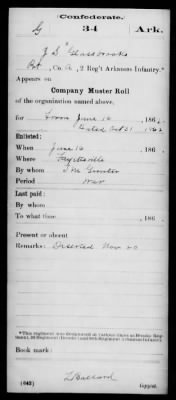 Confederate.
G 34 Ark.
J. S. Glassbrooks
Pvt, Co. A, 2 Reg't Arkansas Infantry.*
Appears on
Company Muster Roll
of the organization named above,
for From June 16, 186
Dated Oct 31, 1862
Enlisted:
When June 16, 186
Where Fayetteville
By whom
Period War
Last paid:
By whom
To what time , 186
Present or absent
Remarks: Deserted Nov 20
*This regiment was designated at various times as
Book mark:
(642) Copyist.